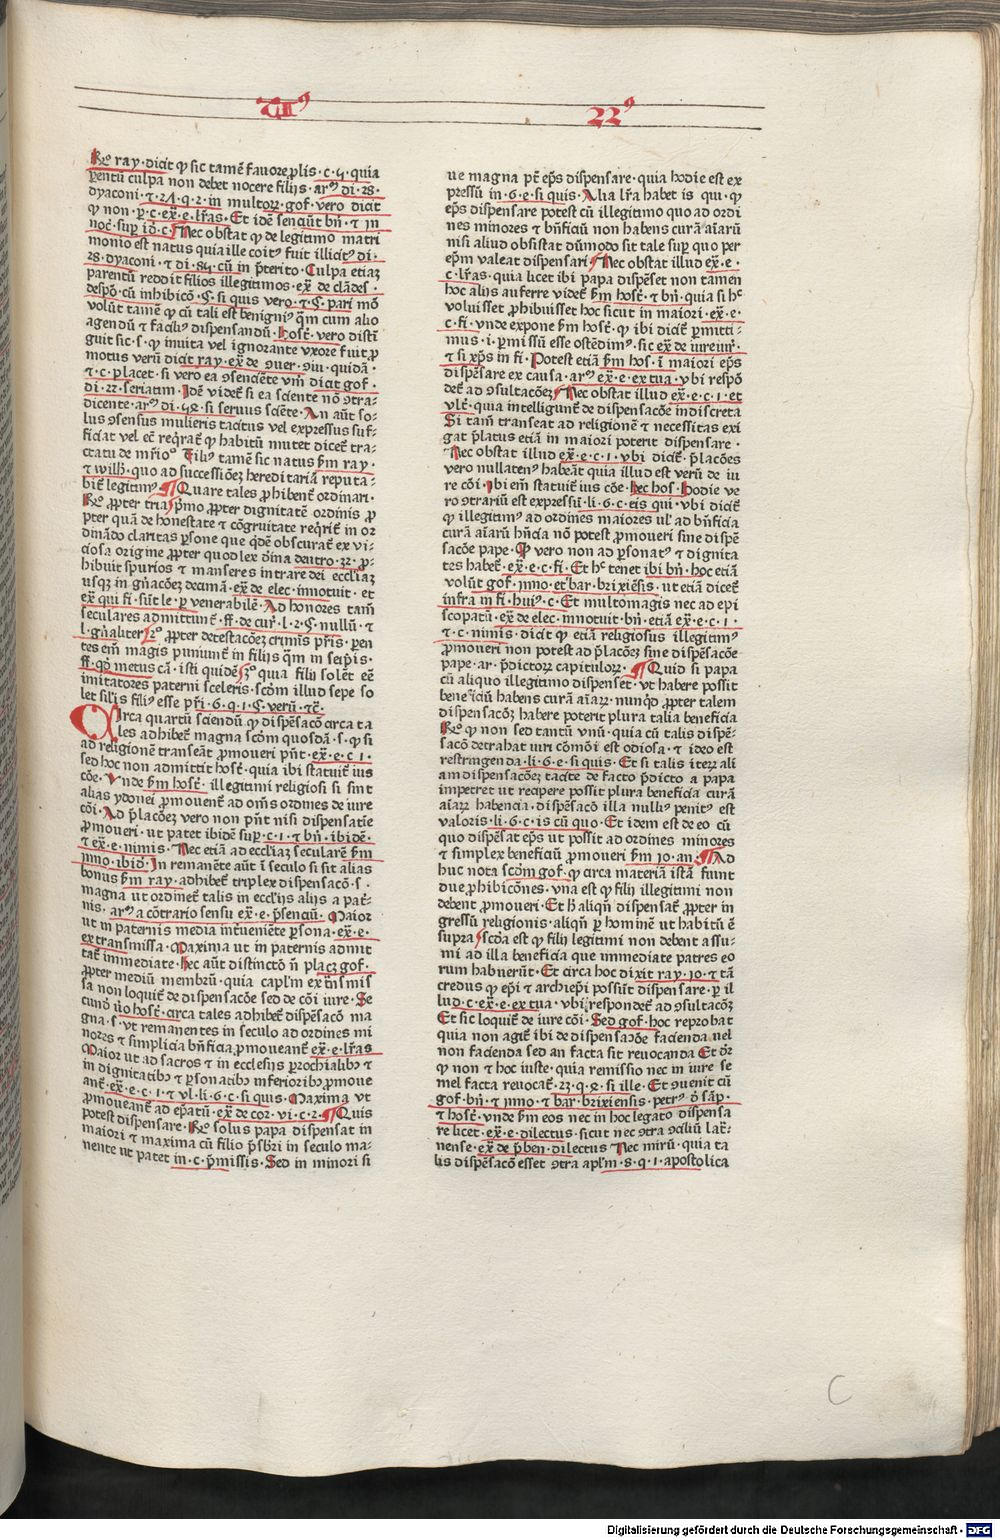 Tit⁹ 22⁹
Rº ray · dicit ꝙ sic tamē fauore ꝓlis · c · 4 · quia
pentū culpa non debet nocere filijs · arº di · 28 ·
dyaconi · ⁊ · 24 · q · 2 · in multoꝝ · gof · vero dicit
ꝙ non · ꝑ · c · ex̄ · e · lr̄as · Et idē senciūt bn̄ · ⁊ in
noc̄ · suꝑ id · c · Nec obstat ꝙ de legitimo matri
monio est natus quia ille coit⁹ fuit illicit⁹ di ·
28 · dyaconi · ⁊ di · 84 · cū in p̄terito · Culpa etiaꝫ
parentū reddit filios illegitimos · ex̄ · de clādes ·
despō · cū inhibicō · C · si quis vero · ⁊ C · pari mō
volūt tamē ꝙ cū tali est benigni⁹ q̄m cum alio
agendū ⁊ facili⁹ dispensandū · host̄ · vero disti
guit sic · s · ꝙ inuita vel ignorante vxore fuit ꝓ
motus verū dicit ray · ex̄ · de ꝯuer · ꝯiu · quidā ·
⁊ · c · placet · si vero ea ꝯsenciēte vm̄ dicit gof ·
di · 22 · seriatim · Idē videt̄ si ea sciente nō ꝯtra
dicente · arº · di · 48 · si seruus sciēte · An aūt so
lus ꝯsensus mulieris tacitus vel expressus suf
ficiat vel ec̄ req̄rat̄ ꝙ habitū mutet dicet̄ tra
ctatu de mr̄iº · Fili⁹ tamē sic natus ẜm ray ·
⁊ wilh · quo ad successiōeꝫ hereditariā reputa
bit̄ legitim⁹ ¶ Quare tales ꝓhibent̄ ordinari ·
Rº ꝓpter tria · p̄mo ꝓpter dignitatē ordinis ꝓ
pter quā de honestate ⁊ cōgruitate req̄rit̄ in or
dinādo claritas ꝑsone que q̄dē obscurat̄ ex vi
ciosa origine ꝓpter quod lex diu̅ina deutro · 23 · ꝓ
hibuit spurios ⁊ manseres intrare dei eccl̄iaꝫ
usqꝫ in gn̄acōeꝫ decimā · ex̄ · de elec · innotuit · et
ex̄ · qui fi · sūt le · ꝑ venerabilē · Ad honores tam̄
seculares admittunt̄ · ff · de cur̄ · l · 2 · C · nullū · ⁊
l · gn̄aliter 2º ꝓpter detestacōeꝫ crimīs pr̄is · paren
tes em̄ magis puniunt̄ in filijs q̄m in seip̄is ·
ff · qº metus cā · isti quidē 3º quia filij solēt eē
imitatores paterni sceleris · scd̄m illud sepe so
let sil̄is fili⁹ esse pr̄i · 6 · q · 1 · C · verū · ⁊c̄ ·
Circa quartū sciendū ꝙ dispēsacō circa ta
les adhibet̄ magna scd̄m quosdā · s · ꝙ si
ad religionē transeāt ꝓmoueri pn̄t · ex̄ · e · c · 1 ·
sed hoc non admittit host̄ · quia ibi statuit̄ ius
cōe · Vnde ẜm host̄ · illegitimi religiosi si sint
alias ydonei ꝓmouent̄ ad om̄s ordines de iure
cōi · Ad p̄lacōeꝫ vero non pn̄t nisi dispensatiue
ꝓmoueri · ut patet ibidē suꝑ · c · 1 · ⁊ bn̄ · ibidē ·
⁊ ex̄ · e · nimis · Nec etiā ad eccl̄iaꝫ secularē ẜm
Inno · ibid̄ · In remanēte aūt ī seculo si sit alias
bonus ẜm ray · adhibet̄ triplex dispensacō · s ·
magna ut ordinet̄ talis in eccl̄ijs alijs a pat̄
nis · arº a cōtrario sensu ex̄ · e · p̄senciū · Maior
ut in paternis media int̄ueniēte ꝑsona · ex̄ · e ·
ex transmissa · Maxima ut in paternis admit
tat̄ immediate · hec aūt distinctō n̄ placꝫ gof ·
ꝓpter mediū membrū · quia capl̄m ex tn̄smis
sa non loquit̄ de dispensacōe sed de cōi iure · Se
cundº v̓o host̄ · circa tales adhibet̄ dispēsacō ma
gna · s · vt remanentes in seculo ad ordines mi
nores ⁊ simplicia bn̄ficia ꝓmoueant̄ ex̄ · e · lr̄as
Maior ut ad sacros ⁊ in ecclesijs ꝑrochialibꝫ ⁊
in dignitatibꝫ ⁊ ꝑsonatibꝫ inferioribꝫ ꝓmoue
ant̄ · ex̄ · e · c · 1 · ⁊ vl · li · 6 · c · si quis · Maxima vt
ꝓmoueant̄ ad ep̄atū · ex̄ · de cor · vi · c · 2 · ¶ Quis
potest dispensare · Rº solus papa dispensat in
maiori ⁊ maxima cū filio p̄sbr̄i in seculo ma
nente ut patet in · c · p̄missis · Sed in minori si
ue magna pt̄ ep̄s dispensare · quia hodie est ex
pressū in · 6 · e · si quis · Alia lr̄a habet is qui · ꝙ
ep̄s dispensare potest cū illegitimo quo ad ordi
nes minores ⁊ bn̄ficiū non habens curā aīarū
nisi aliud obsistat dūmodo sit tale suꝑ quo per
ep̄m valeat dispensari · Nec obstat illud ex̄ · e ·
c · lr̄as · quia licet ibi papa dispēset non tamen
hoc alijs auferre videt̄ ẜm host̄ · ⁊ bn̄ · quia si hº
voluisset ꝓhibuisset hoc sicut in maiori · ex̄ · e ·
c · fi · vnde expone ẜm host̄ · ꝙ ibi dicit̄ ꝑmitti
mus · i · ꝑmissū esse ostēdim⁹ · sic ex̄ · de iureiur̄ ·
⁊ si xp̄s in fi · Potest etiā ẜm hos · ī maiori ep̄s
dispēsare ex causa · arº ex̄ · e · ex tua · vbi respō
det̄ ad ꝯsultacōeꝫ · Nec obstat illud ex̄ · e · c · 1 · et
vlt̄ · quia intelligunt̄ de dispensacōe indiscreta
Si tam̄ transeat ad religionē ⁊ necessitas exi
gat p̄latus etiā in maiori poterit dispensare ·
Nec obstat illud ex̄ · e · c · 1 · vbi dicit̄ p̄lacōes
vero nullaten⁹ habeāt quia illud est verū de iu
re cōi · Ibi em̄ statuit̄ ius cōe · hec hos · Hodie ve
ro ꝯtrariū est expressū · li · 6 · c · eis qui · vbi dicit̄
ꝙ illegitim⁹ ad ordines maiores ul̓ ad bn̄ficia
curā aīarū hn̄cia nō potest ꝓmoueri sine dispē
sacōe pape · Qº vero non ad ꝑsonat⁹ ⁊ dignita
tes habet̄ · ex̄ · e · c · fi · Et hº tenet ibi bn̄ · hoc etiā
volūt gof · Inno · et bar · brixiēsis · ut etiā dicet̄
infra in fi · hui⁹ · c · Et multomagis nec ad epi
scopatū · ex̄ · de elec · innotuit · bn̄ · etiā ex̄ · e · c · 1 ·
⁊ · c · nimis · dicit ꝙ etiā religiosus illegitim⁹
ꝓmoueri non potest ad p̄lacōeꝫ sine dispēsacōe
pape · ar · p̄dictoꝝ capituloꝝ · ¶ Quid si papa
cū aliquo illegitimo dispenset̄ · vt habere possit
beneficiū habens curā aīaꝝ · nunqd ꝓpter talem
dispensacōꝫ habere poterit plura talia beneficia
Rº ꝙ non sed tantū vnū · quia cū talis dispē
sacō detrahat iuri cōmōi est odiosa · ⁊ ideo est
restringenda · li · 6 · e · si quis · Et si talis iteꝝ ali
am dispensacōeꝫ tacite de facto p̄dicto a papa
impetret ut recipere possit plura beneficia curā
aīaꝝ habencia · dispēsacō illa nulli⁹ penit⁹ est
valoris · li · 6 · c · is cū quo · Et idem est de eo cū
quo dispēsat ep̄s ut possit ad ordines minores
⁊ simplex beneficiū ꝓmoueri ẜm io · an · ¶ Ad
huc nota scd̄m gof · ꝙ circa materiā istā fiunt
due ꝓhibicōnes · vna est ꝙ filij illegitimi non
debent ꝓmoueri · Et h̄ aliqn̄ dispensat̄ ꝓpter in
gressū religionis · aliqn̄ ꝑ hominē ut habitū ē
supra · scd̄a est ꝙ filij legitimi non debent assu
mi ad illa beneficia que immediate patres eo
rum habuerūt · Et circa hoc dixit ray · io · ⁊ tā
credus ꝙ ep̄i ⁊ archiep̄i possūt dispensare · ꝑ il
lud · c · ex̄ · e · ex tua · vbi respondet̄ ad ꝯsultacōꝫ
Et sic loquit̄ de iure cōi · Sed gof · hoc reprobat
quia non agit̄ ibi de dispensacōe facienda uel
non facienda sed an facta sit reuocanda Et dr̄
ꝙ non ⁊ hoc iuste · quia remissio nec in iure se
mel facta reuocat̄ · 23 · q · 4 · si ille · Et ꝯuenit cū
gof · bn̄ · ⁊ Inno · ⁊ bar · brixiensis · petr⁹ d̓ sāp̄ ·
⁊ host̄ · vnde ẜm eos nec in hoc legato dispensa
re licet · ex̄ · e · dilectus · sicut nec ꝯtra ꝯciliū lat̄
nense · ex̄ · de p̄ben · dilectus Nec mirū · quia ta
lis dispēsacō esset ꝯtra apl̄m · 8 · q · 1 · apostolica
C
Digitalisierung gefördert durch die Deutsche Forschungsgemeinschaft · DFG